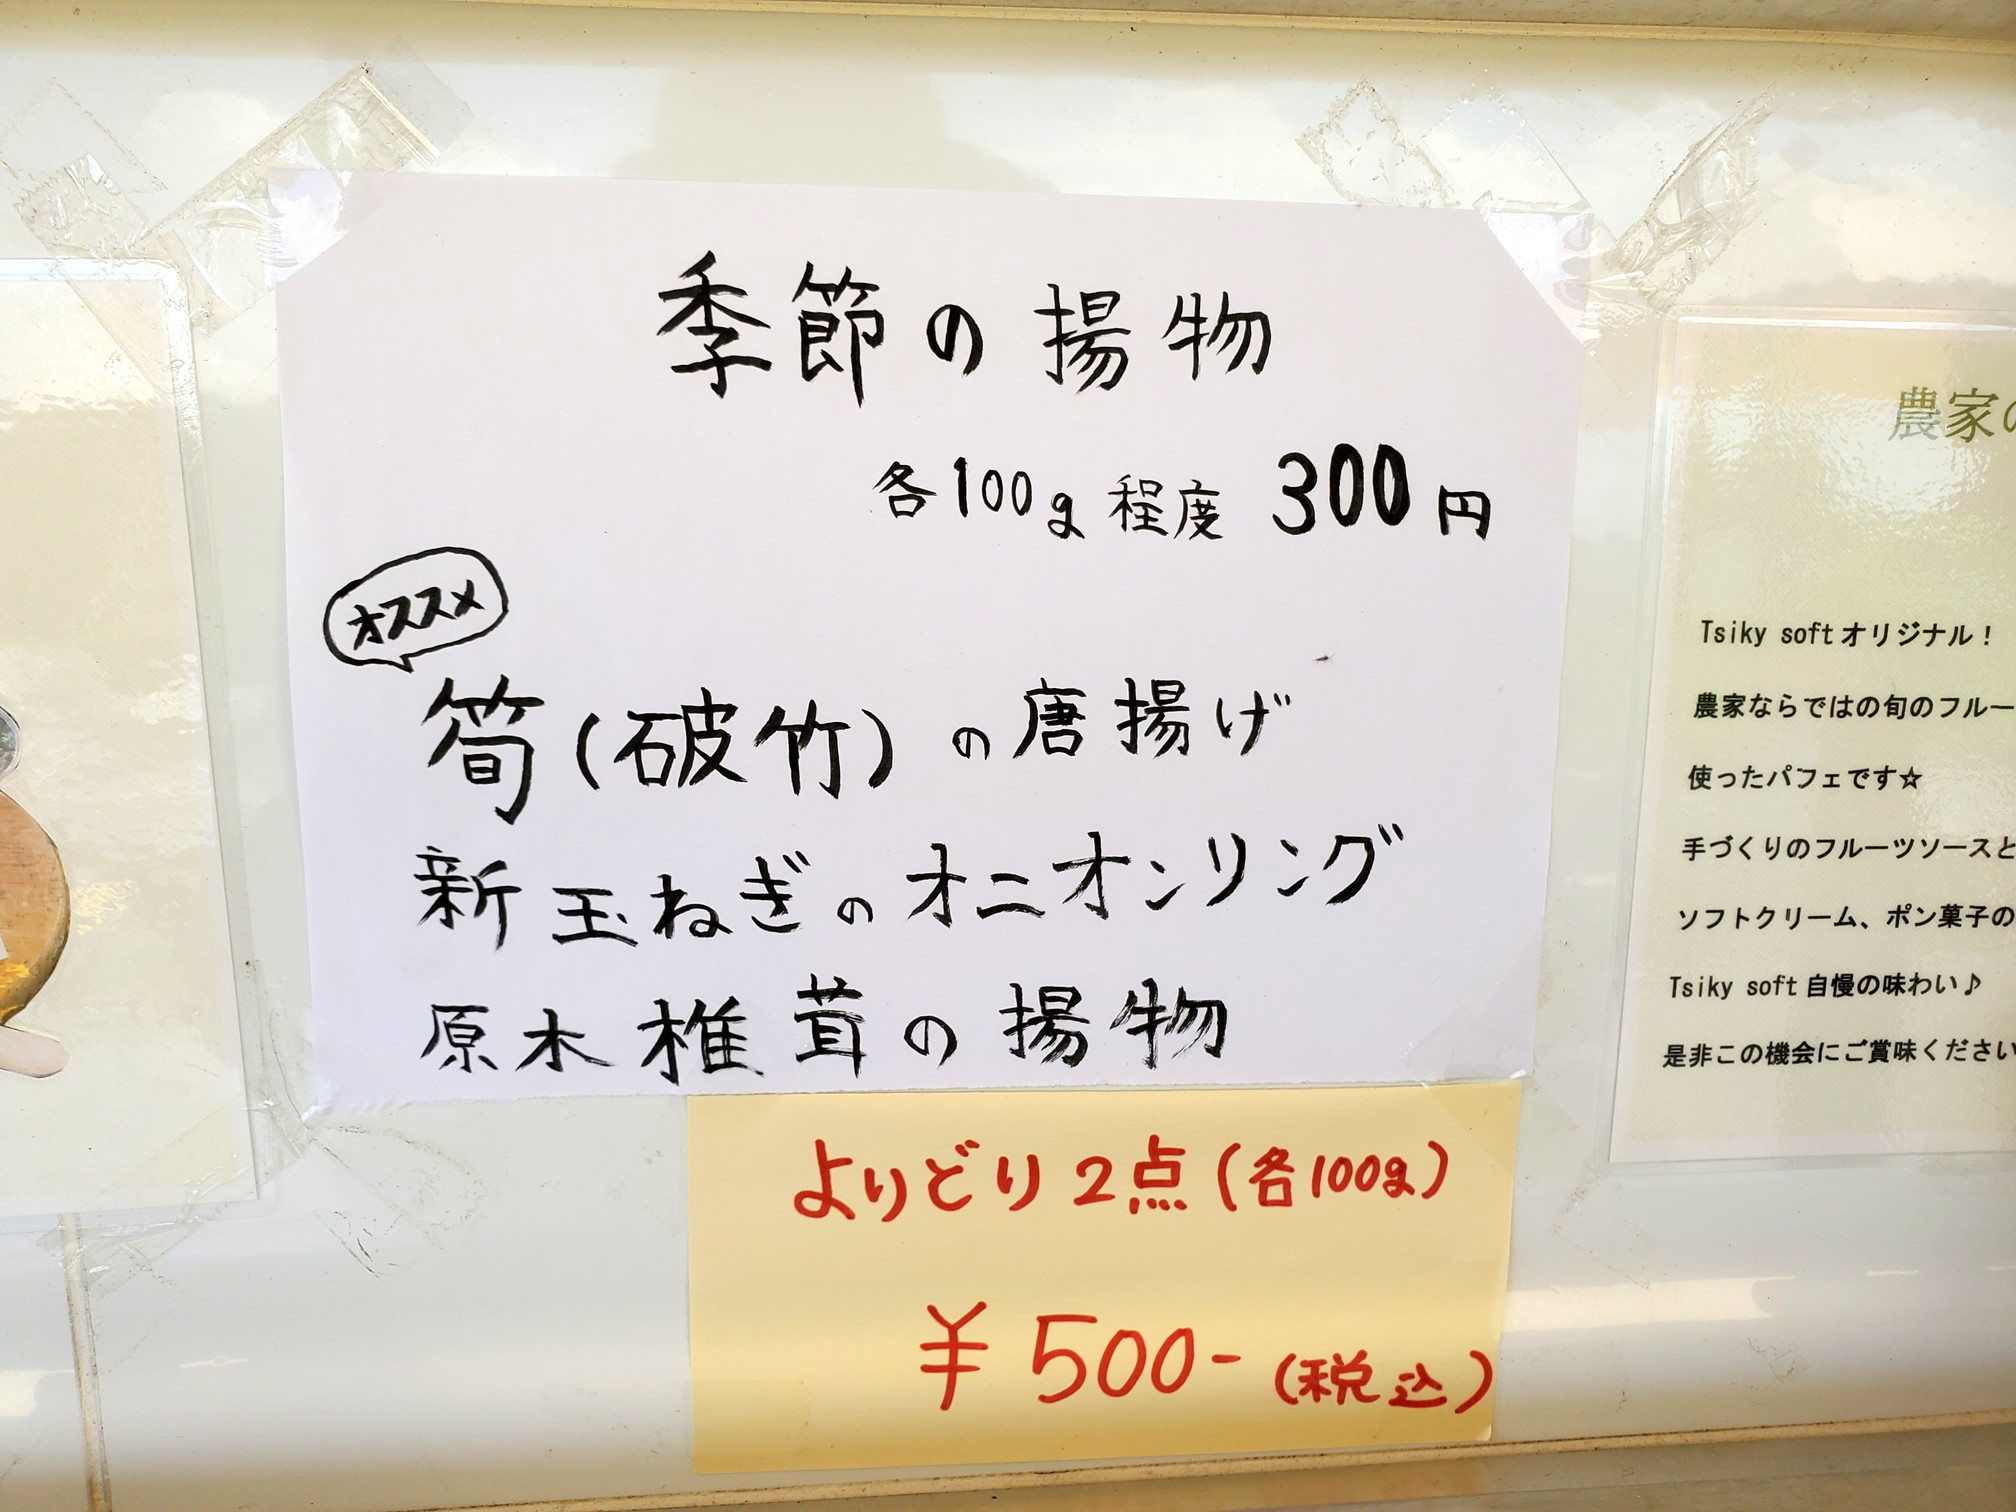 季節の揚物
各100g程度 300円
オススメ
筍(破竹)の唐揚げ
新玉ねぎのオニオンリング
原木椎茸の揚物
よりどり2点(各100g)
¥500-(税込)
農家の
Tsiky softオリジナル！
農家ならではの旬のフルー
使ったパフェです☆
手づくりのフルーツソースと
ソフトクリーム、ポン菓子の
Tsiky soft自慢の味わい♪
是非この機会にご賞味ください